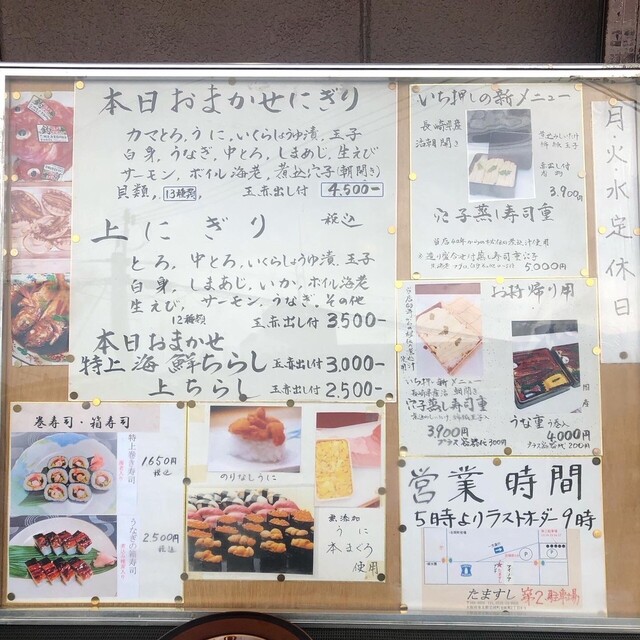 本日おまかせにぎり
カマとろ,うに,いくらしょうゆ漬,玉子
白身,うなぎ,中とろ,しまあじ,生えび
サーモン,ボイル海老,煮込穴子(朝開き)
貝類,13種類,玉,赤出し付 4,500-
上にぎり 税込
とろ,中とろ,いくらしょうゆ漬,玉子
白身,しまあじ,いか,ボイル海老
生えび,サーモン,うなぎ,その他
12種類 玉,赤出し付 3,500-
本日おまかせ
特上海鮮ちらし 玉,赤出し付 3,000-
上ちらし 玉,赤出し付 2,500-
いち押しの新メニュー
長崎県産
活〆開き
赤出し付
3,900円
穴子蒸し寿司重
5,000円
月火水定休日
お持帰り用
いち押し新メニュー
穴子蒸し寿司重
3,900円
プラス容器代300円
うな重
4,000円
プラス容器代200円
巻寿司・箱寿司
特上巻き寿司
1650円
税込
うなぎの箱寿司
2,500円
税込
のりなしうに
無添加
うに
本まぐろ
使用
営業時間
5時よりラストオーダー9時
たますし 第2駐車場